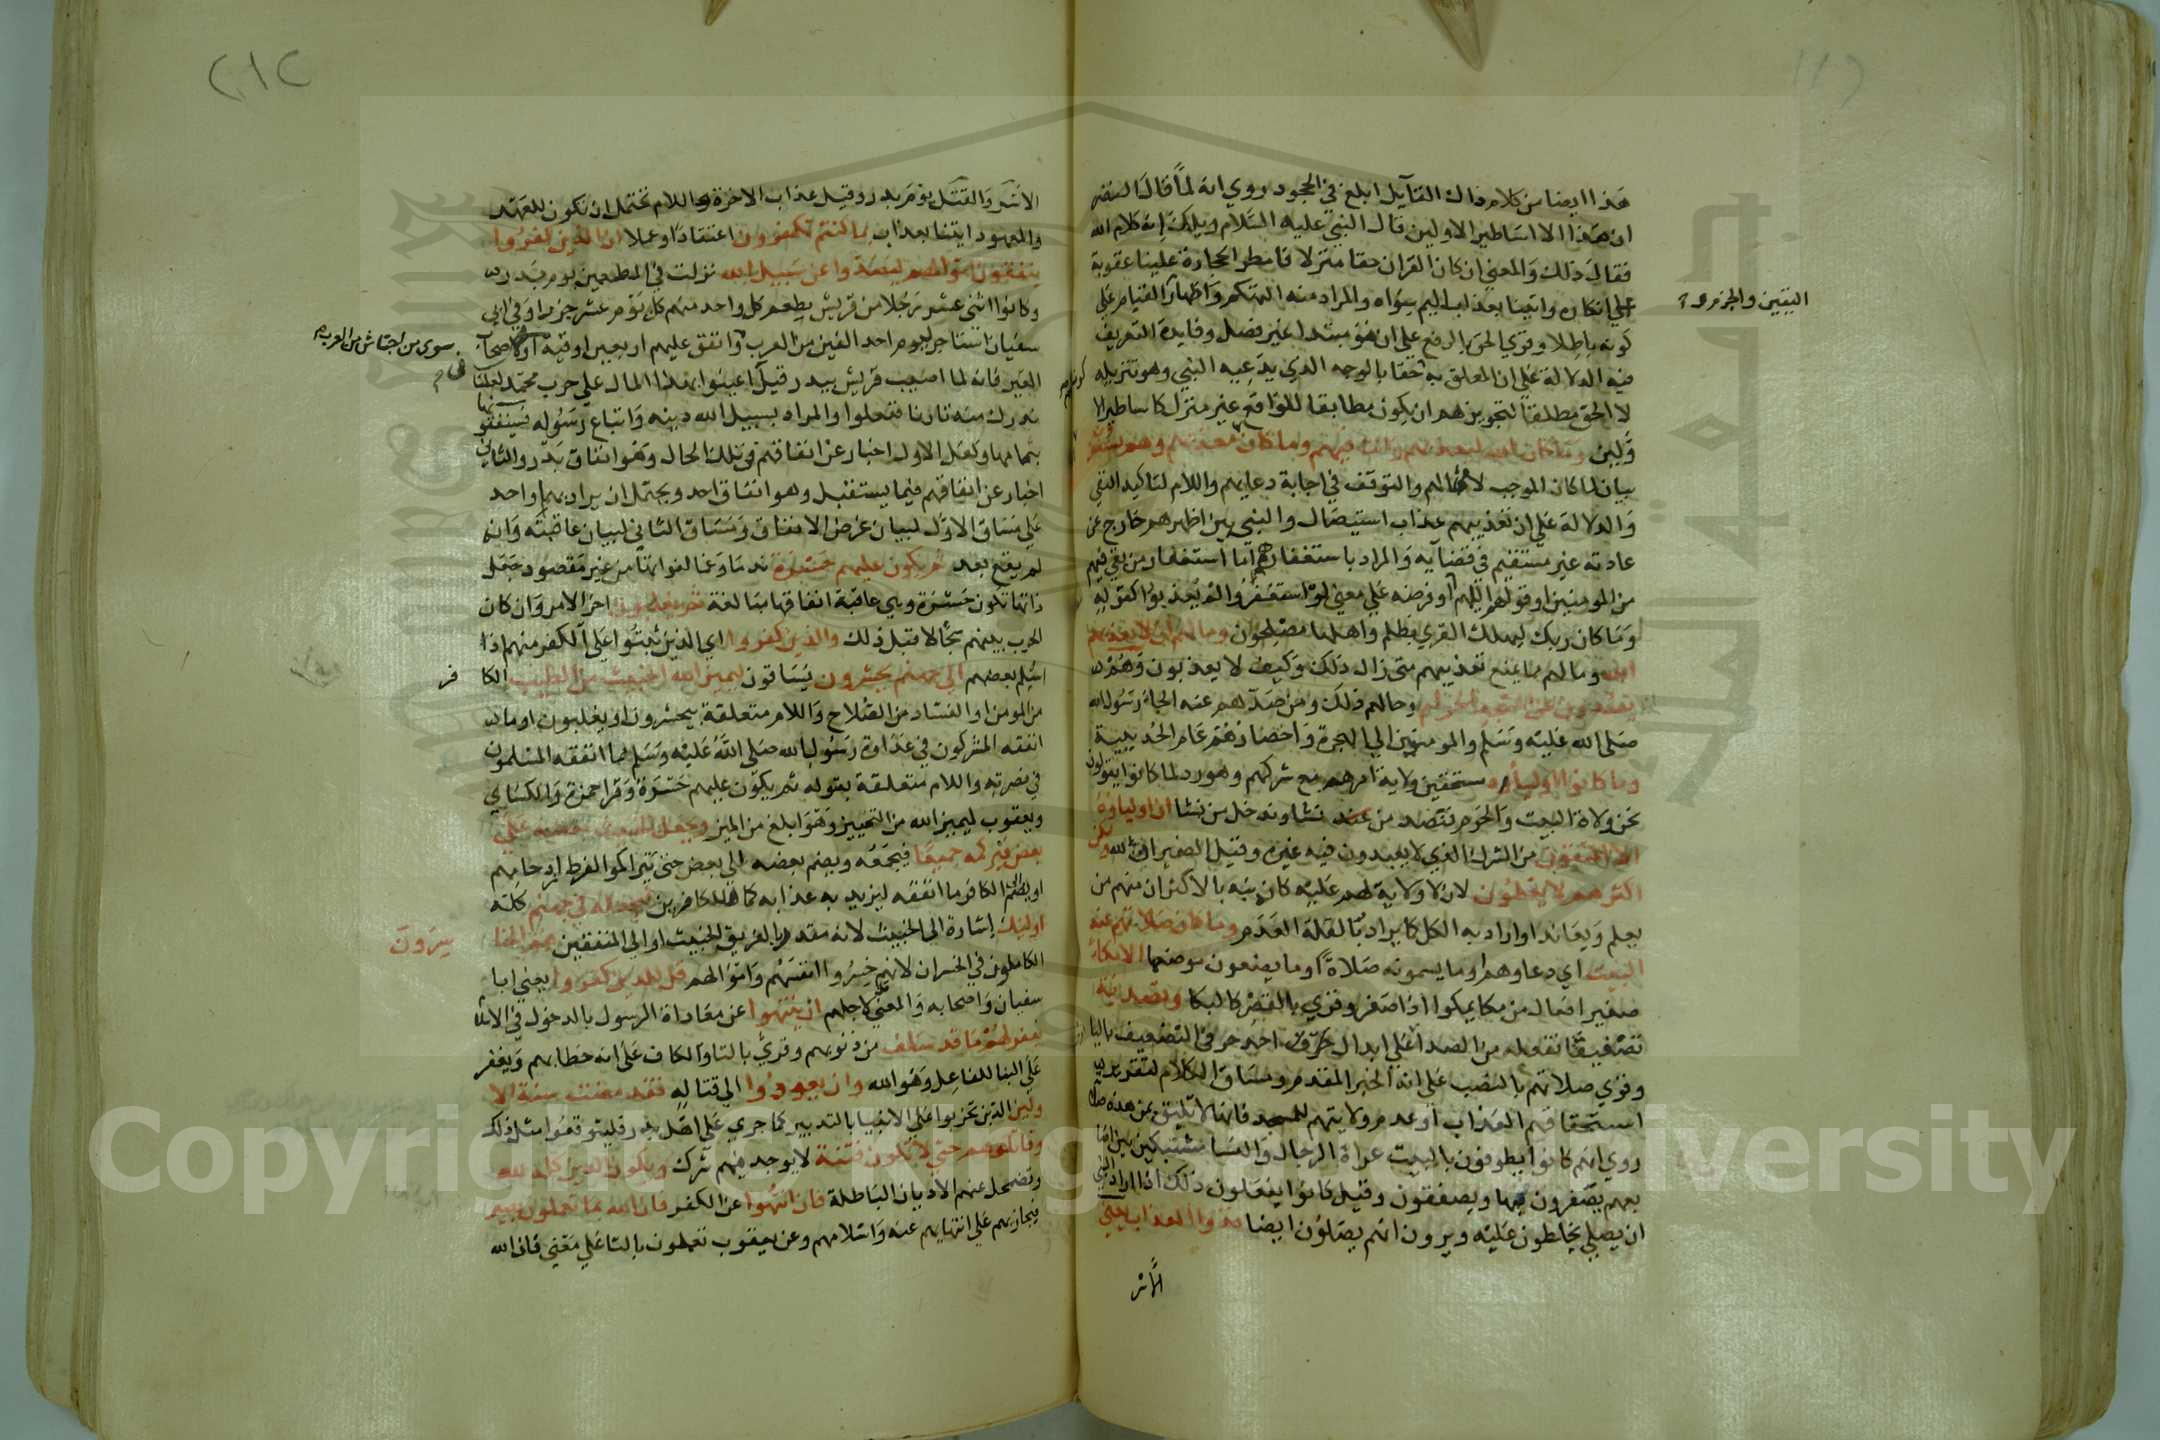 هذا ايضا من كلام ذاك القايل ابلغ في الجحود روي انه لما قال النضر
ان هذا الا اساطير الاولين قال النبي عليه السلام ويلك انه كلام الله
فقال ذلك والمعني ان كان القران حقا منزلا فامطر الحجارة علينا عقوبة
علي انكاره وايتنا بعذاب اليم سواه والمراد منه التهكم واظهار
اليقين والجزم
كونه باطلا وقري الحق بالرفع علي ان هو مبتدا غير فصل وفايدة التعريف
فيه الدلالة علي ان المعلق به حقا بالوجه الذي يدعيه النبي وهو تنزيله
لا الحق مطلقا لتجويزهم ان يكون مطابقا للواقع غير منزل كاساطير الا
ولين وما كان الله ليعذبهم وانت فيهم وما كان معذبهم وهم
بيان لما كان الموجب لامهالهم والتوقف في اجابة دعايهم واللام لتاكيد النفي
والدلالة علي ان تعذيبهم عذاب استيصال والنبي بين اظهرهم خارج عن
عادته غير مستقيم في قضايه والمراد باستغفارهم اما استغفار من بقي فيهم
من المومنين او قولهم اللهم او فرضه علي معني لو استغفروا لم يعذبوا كقوله
وما كان ربك ليهلك القري بظلم واهلها مصلحون وما لهم ان لا يعذبهم
الله وما لهم مما يمنع تعذيبهم متي زال ذلك وكيف لا يعذبون وهم
يصدون عن المسجد الحرام وحالهم ذلك ومن صدهم عنه الجاء رسول الله
صلي الله عليه وسلم والمومنين الي الهجرة واحصارهم عام الحديبية
وما كانوا اولياءه مستحقين ولاية امره مع شركهم وهو رد لما كانوا يقولون
نحن ولاة البيت والحرم فنصد من نشا وندخل من نشا ان اولياوه
الا المتقون من الشرك الذي لا يعبدون فيه غيره وقيل الضميران لله ولكن
اكثرهم لا يعلمون ان لا ولاية لهم عليه كانه نبه بالاكثر ان منهم من
يعلم ويعاند او اراد به الكل كما يراد بالقلة العدم وما كان صلاتهم عند
البيت اي دعاوهم او ما يسمونه صلاة او ما يضعون موضعها الا مكاء
صفيرا فعال من مكا يمكوا اذا صفر وقري بالقصر كالبكا وتصدية
تصفيقا تفعلة من الصدا علي ابدال حرف احد حرفي التضعيف باليا
وقري صلاتهم بالنصب علي انه الخبر المقدم ومساق الكلام لتقرير
استحقاقهم العذاب او عدم ولايتهم للمسجد فانها لا تليق بمن هذه صلاته
روي انهم كانوا يطوفون بالبيت عراة الرجال والنسا مشتبكين بين اصا
بعهم يصفرون فيها ويصفقون وقيل كانوا يفعلون ذلك اذا اراد النبي
ان يصلي يخلطون عليه ويرون انهم يصلون ايضا فذوقوا العذاب يعني
الاسر
الاسر والقتل يوم بدر وقيل عذاب الاخرة واللام تحتمل ان تكون للعهد
والمعهود ايتنا بعذاب بما كنتم تكفرون اعتقادا وعملا ان الذين كفروا
ينفقون اموالهم ليصدوا عن سبيل الله نزلت في المطعمين يوم بدر
وكانوا اثني عشر رجلا من قريش يطعم كل واحد منهم كل يوم عشر جزر او في ابي
سفيان استاجر ليوم احد الفين من العرب وانفق عليهم اربعين اوقية او في اصحاب
سوي من اجتاش من العرب
العير فانه لما اصيب قريش ببدر قيل اعينوا بهذا المال علي حرب محمد لعلنا
ندرك منه ثارنا ففعلوا والمراد بسبيل الله دينه واتباع رسوله فسينفقونها
بتمامها وكعل الاول اخبار عن انفاقهم في تلك الحال وهو انفاق بدر والثاني
اخبار عن انفاقهم فيما يستقبل وهو انفاق احد ويحتمل ان يراد بهما واحد
علي مساق الاول لبيان غرض الانفاق ومساق الثاني لبيان عاقبته وانه
لم يقع بعد ثم يكون عليهم حسرة ندما وغما لفواتها من غير مقصود جعل
ذاتها تكون حسرة وهي عاقبة انفاقها مبالغة ثم يغلبون اخر الامر وان كان
الحرب بينهم سجالا قبل ذلك والذين كفروا اي الذين ثبتوا علي الكفر منهم اذا
اسلم بعضهم الي جهنم يحشرون يساقون ليميز الله الخبيث من الطيب الكا
فر
من المومن او الفساد من الصلاح واللام متعلقة بيحشرون او يغلبون او ما
انفقه المشركون في عداوة رسول الله صلي الله عليه وسلم مما انفقه المسلمون
في نصرته واللام متعلقة بقوله ثم يكون عليهم حسرة وقرا حمزة والكساي
ويعقوب ليميز الله من التمييز وهو ابلغ من الميز ويجعل الخبيث بعضه علي
بعض فيركمه جميعا فيجمعه ويضم بعضه الي بعض حتي يتراكموا لفرط ازدحامهم
او يضم الي الكافر ما انفقه ليزيد به عذابه كما للكافرين فيجعله في جهنم كله
اوليك اشارة الي الخبيث لانه مقدر بالفريق الخبيث او الي المنفقين هم الخا
سرون
الكاملون في الخسران لانهم خسروا انفسهم واموالهم قل للذين كفروا يعني ابا
سفيان واصحابه والمعني لاجلهم ان ينتهوا عن معاداة الرسول بالدخول في الاسلام
يغفر لهم ما قد سلف من ذنوبهم وقري بالتا والكاف علي انه خطابهم ويغفر
علي البنا للفاعل وهو الله وان يعودوا الي قتاله فقد مضت سنة الا
ولين الذين تحزبوا علي الانبيا بالتدبير كما جري علي اهل بدر فليتوقعوا مثل ذلك
وقاتلوهم حتي لا تكون فتنة لا يوجد فيهم شرك ويكون الدين كله لله
وتضمحل عنهم الاديان الباطلة فان انتهوا عن الكفر فان الله بما تعملون بصير
فيجازيهم علي انتهايهم عنه واسلامهم وعن يعقوب تعملون بالتا علي معني فان الله
Copyright © King Saud University